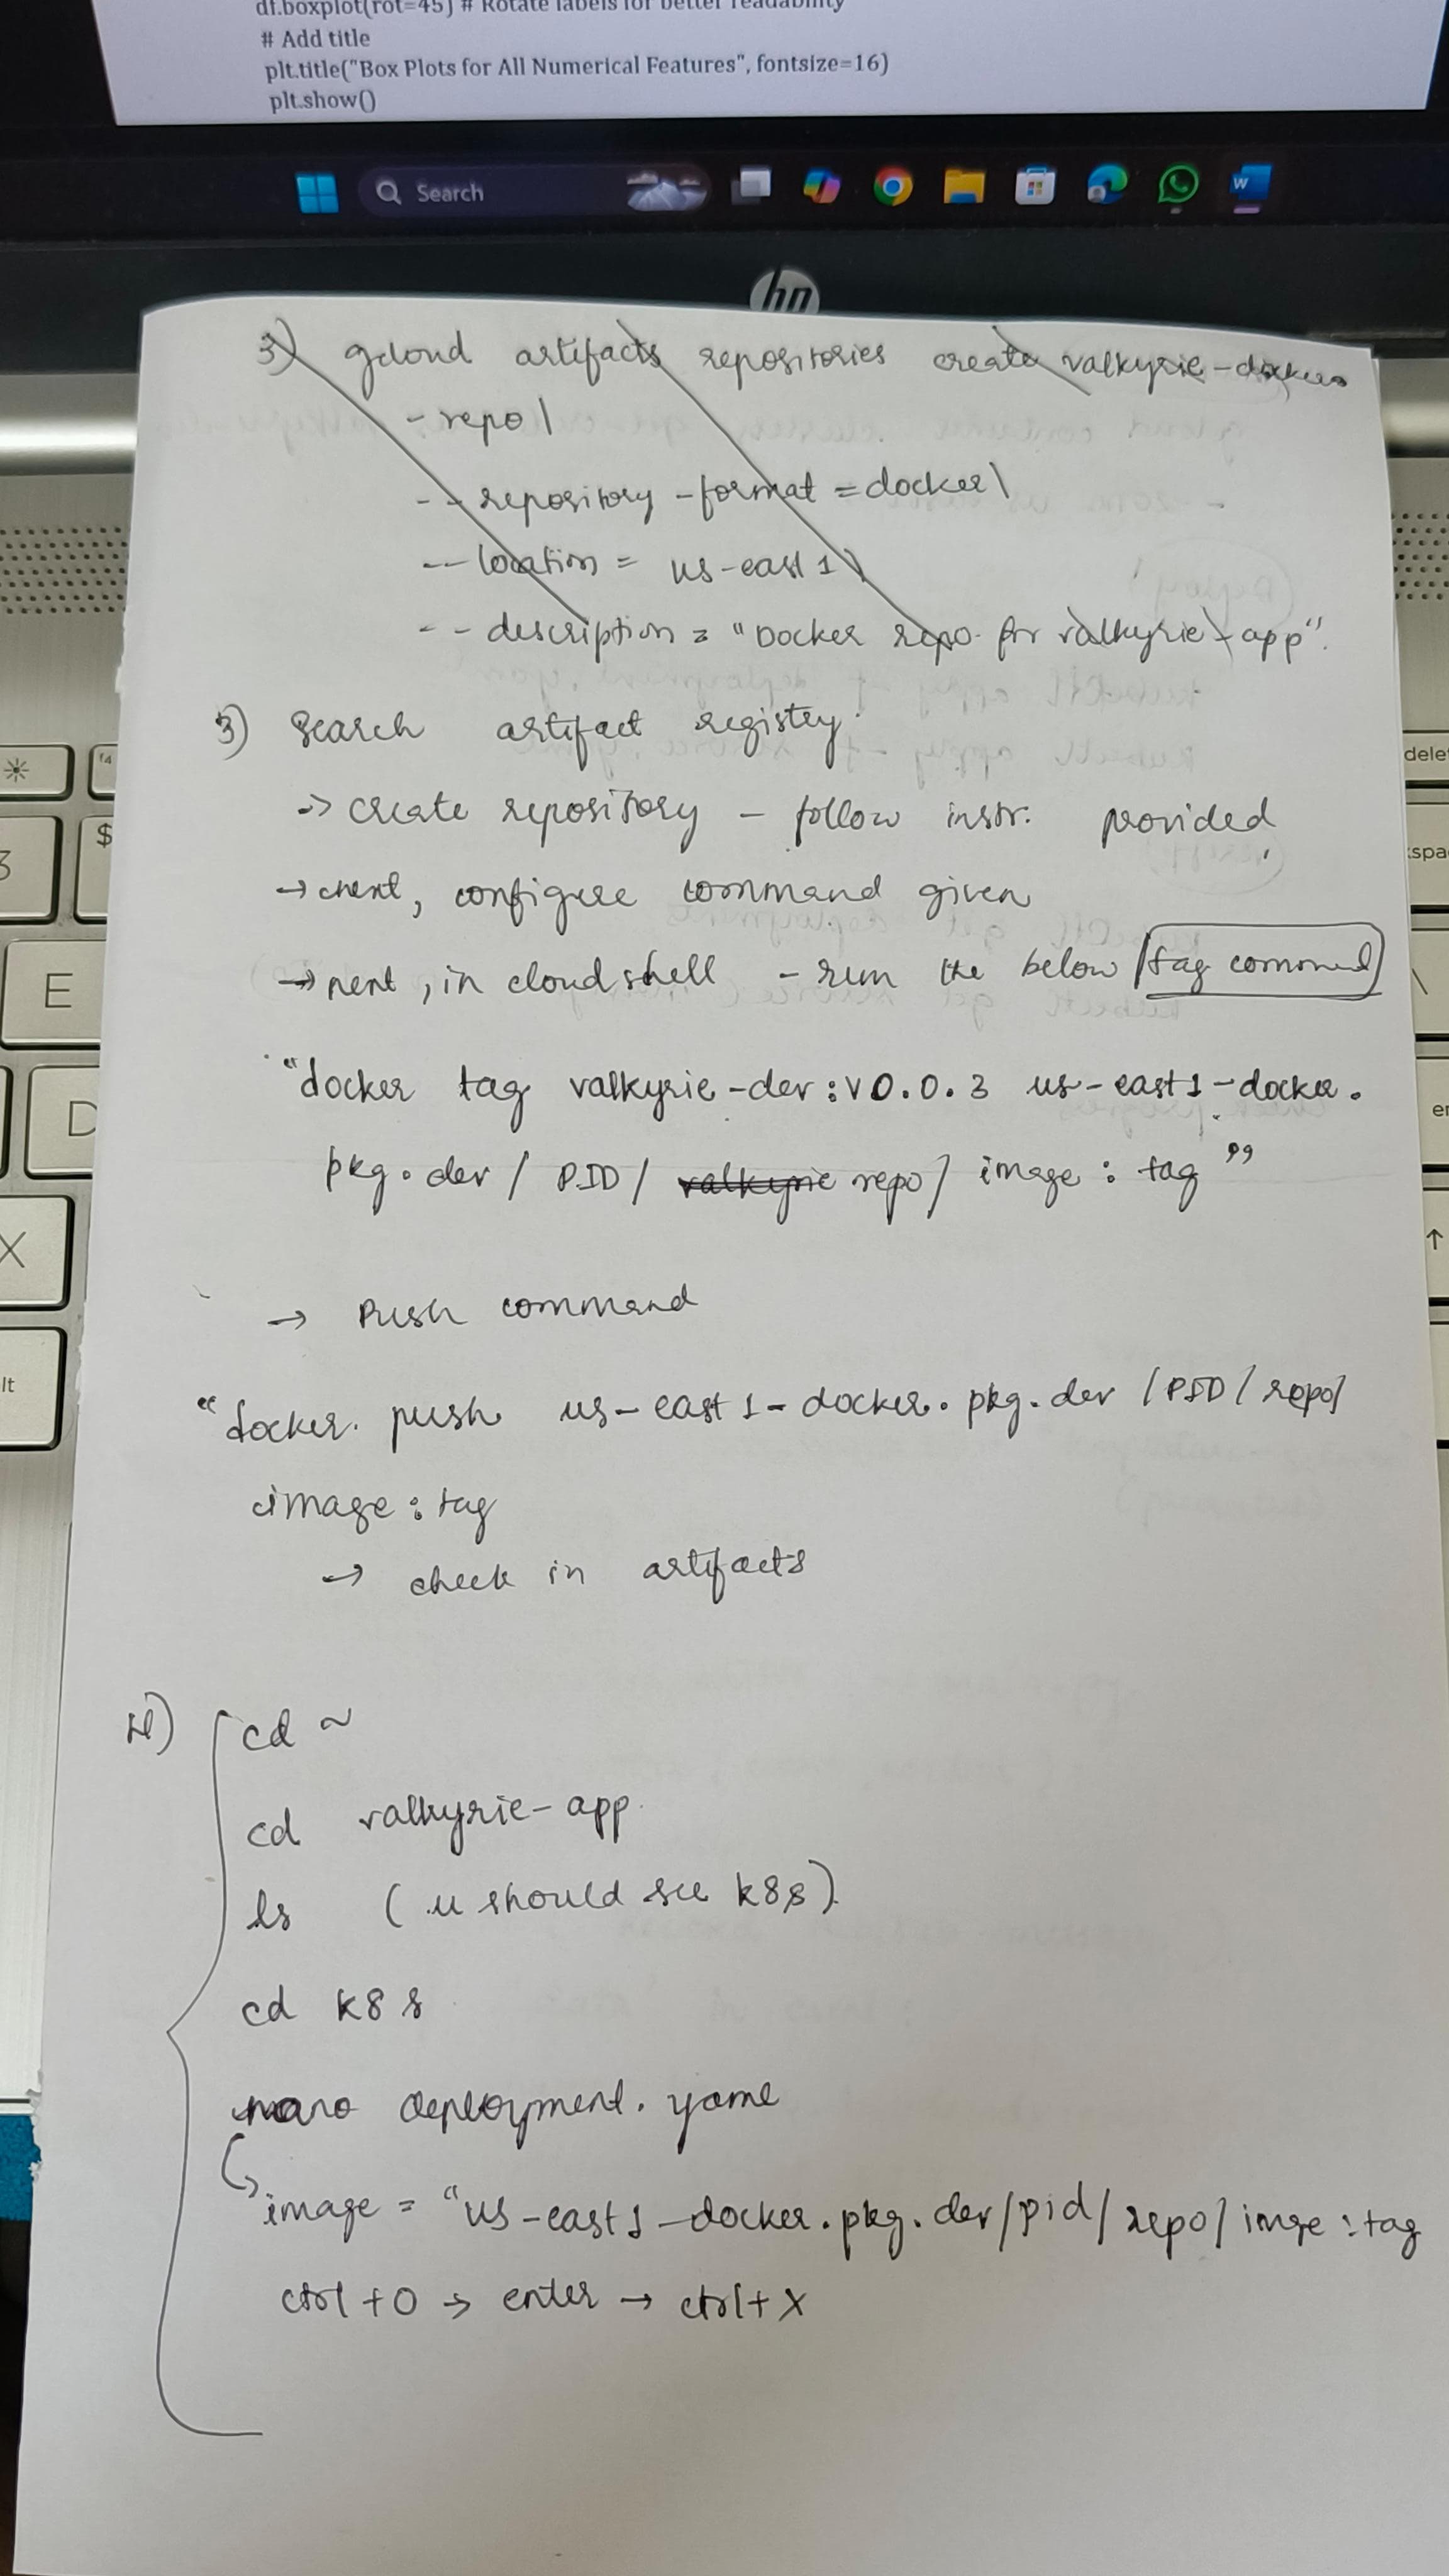 df.boxplot(rot=45) # Rotate labels for better readability
# Add title
plt.title("Box Plots for All Numerical Features", fontsize=16)
plt.show()
Search
hp
3) gcloud artifacts repositories create valkyrie-docker
-repo\
--repository-format=docker\
--location = us-east1\
--description = "Docker repo for valkyrie-app".
3) Search artifact registry.
→ create repository - follow instr. provided
→ next, configure command given
→ next, in cloud shell - run the below tag command
"docker tag valkyrie-dev:v0.0.3 us-east1-docker.
pkg.dev / PID / valkyrie repo / image : tag"
→ Push command
"docker push us-east1-docker.pkg.dev /PID / repo/
image : tag
→ check in artifacts
4) cd ~
cd valkyrie-app
ls (u should see k8s)
cd k8s
nano deployment.yaml
image = "us-east1-docker.pkg.dev/pid/ repo/ imge : tag
ctrl + O → enter → ctrl + X
f4
$
3
E
D
X
lt
delete
\
↑